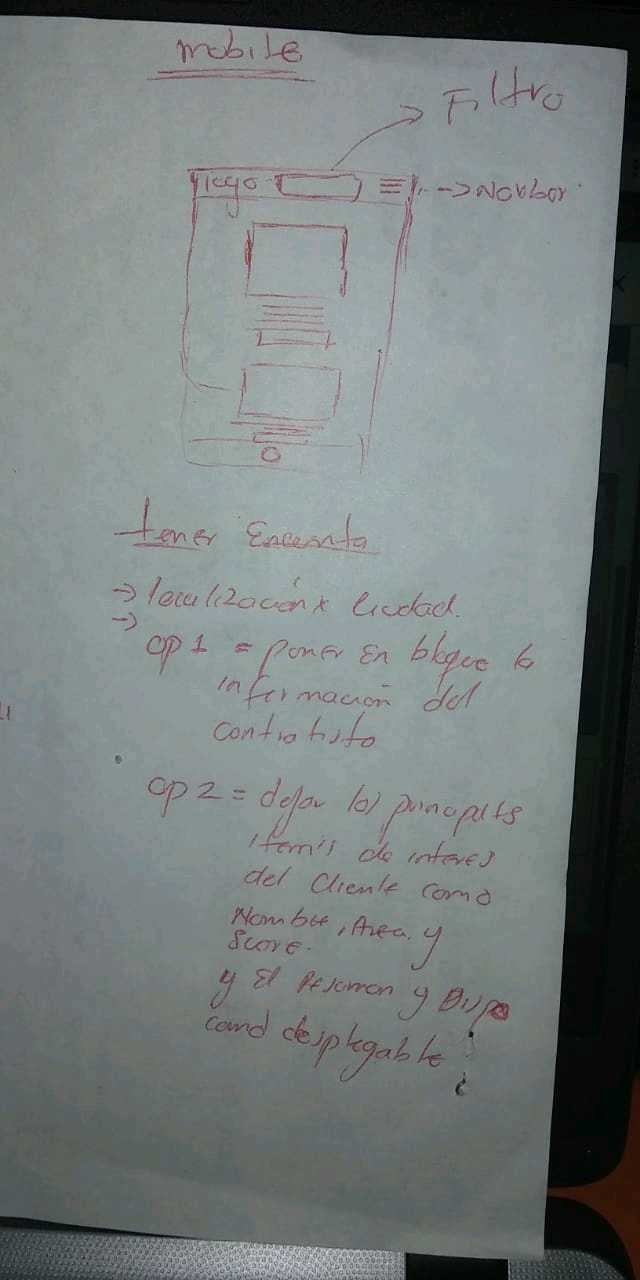 mobile
Filtro
logo
--> Navbar
tener Encuenta
-> localización x Ciudad.
->
op1 = poner en bloque la
información del
contratista
op2 = dejar los principales
items de interes
del cliente como
Nombre, Area y
Score.
y el Resumen y Dispo
como desplegable